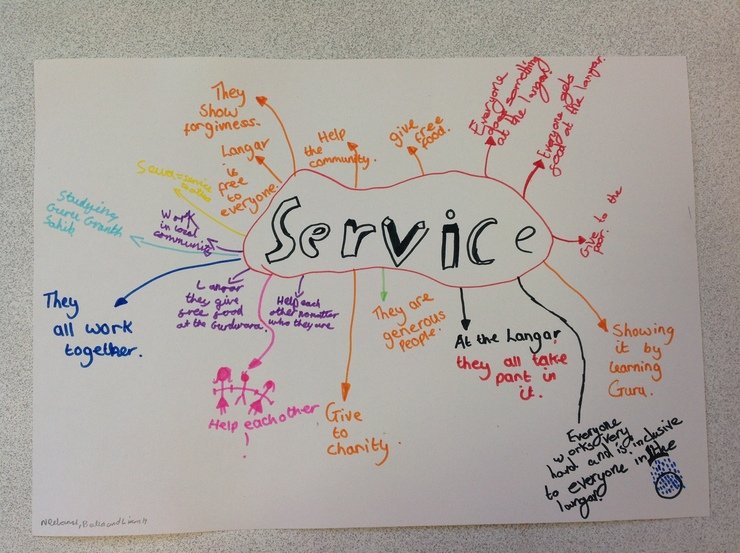 Service
They
show
forgivness.
Langar
is
free
to
everyone.
Help
the
community.
give free
food.
Everyone
does something
at the langar.
Everyone gets
food at the langar.
Give to the
poor.
Showing
it by
learning
Guru.
Everyone
works very
hard and is inclusive
to everyone in the
langar
At the Langar
they all take
part in
it.
They are
generous
people.
Give
to
charity.
Help each
other nomatter
who they are
Help eachother
!
Langar
they give
free food
at the Gurdwara.
They
all work
together.
Work
in local
community
Studying
Guru Granth
Sahib
Sewa = service
to others